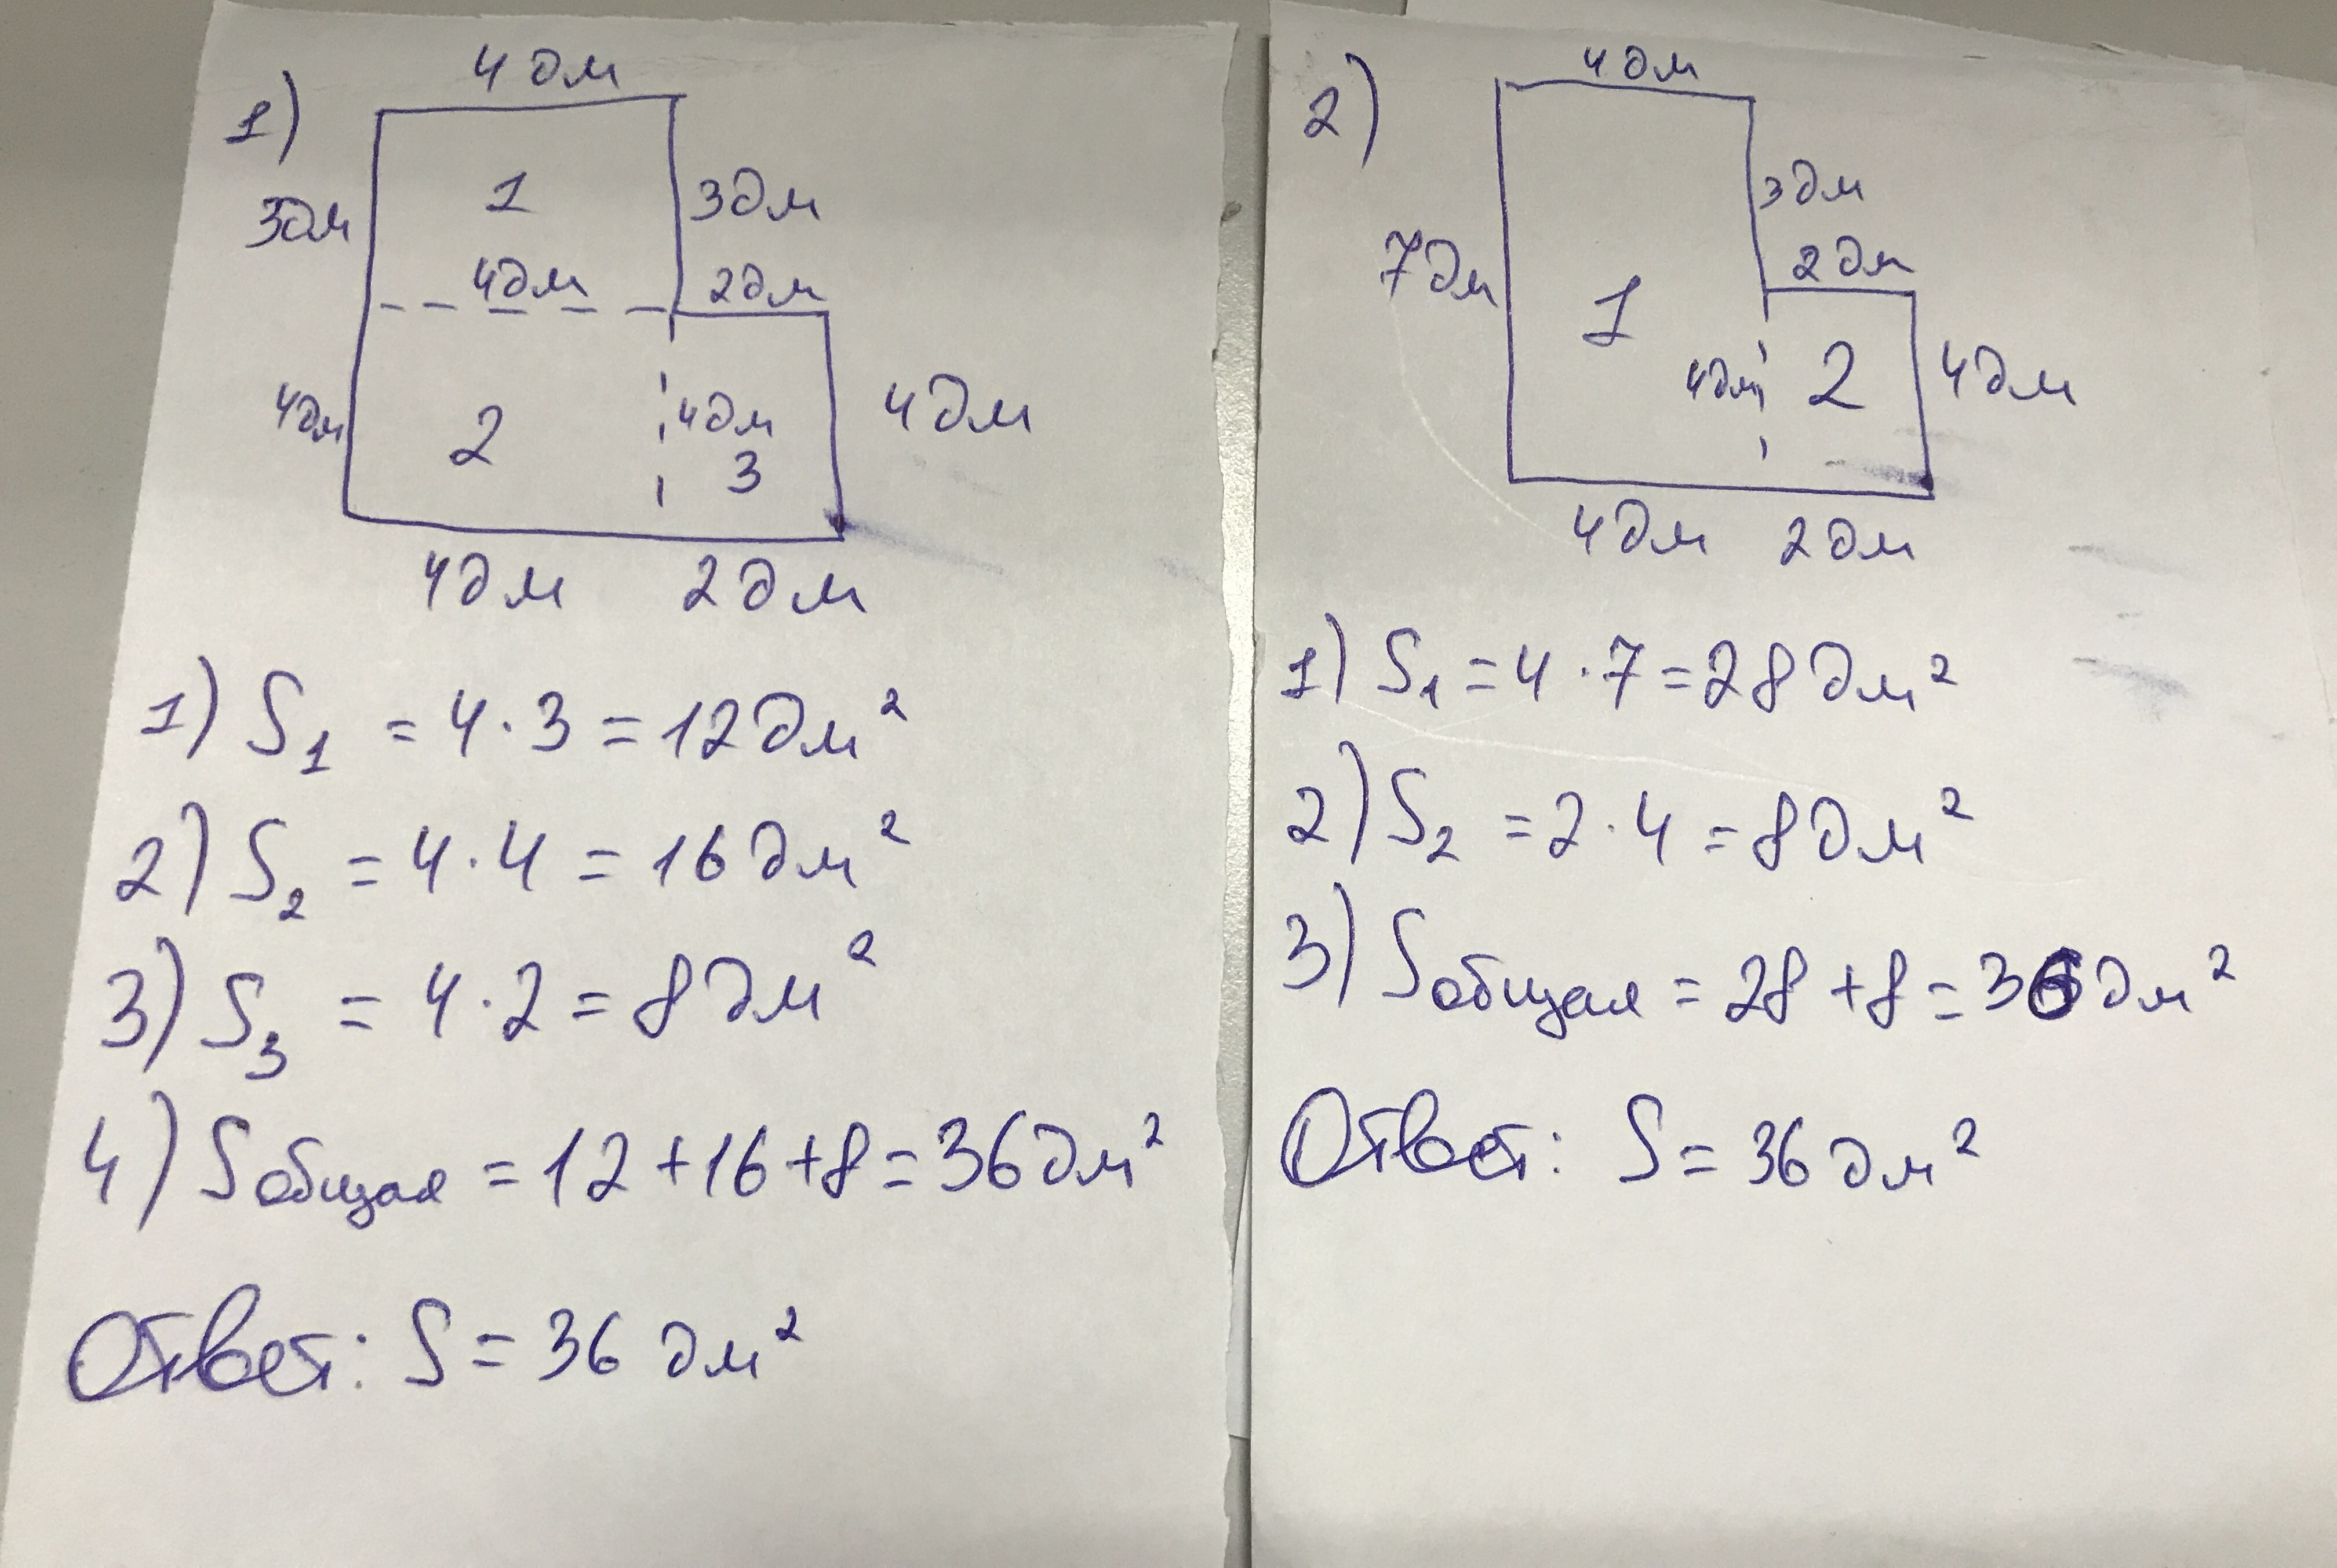 1)
4дм
3дм
1
3дм
4дм
2дм
4дм
2
4дм
3
4дм
4дм
2дм
1) S₁ = 4·3 = 12дм²
2) S₂ = 4·4 = 16дм²
3) S₃ = 4·2 = 8дм²
4) Sобщая = 12+16+8=36дм²
Ответ: S = 36 дм²
2)
4дм
3дм
7дм
2дм
1
4дм
2
4дм
4дм
2дм
1) S₁ = 4·7=28дм²
2) S₂ = 2·4 = 8дм²
3) Sобщая = 28+8=36дм²
Ответ: S = 36 дм²